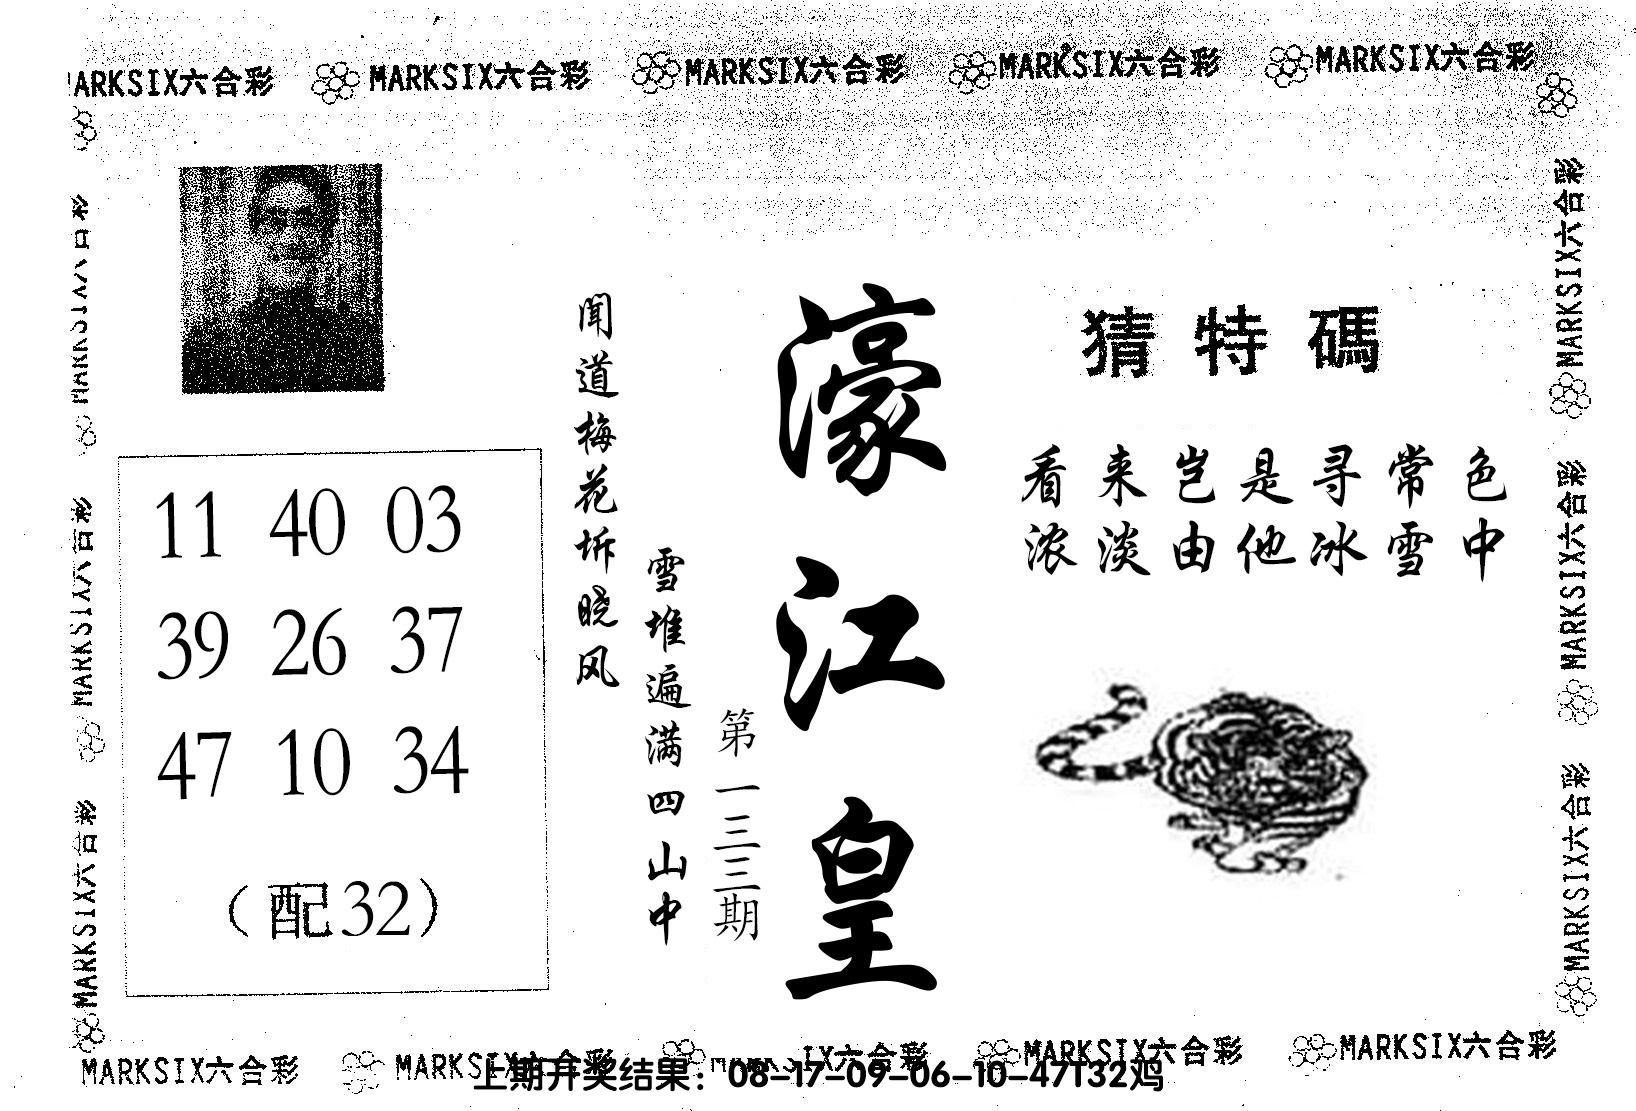 MARKSIX六合彩 MARKSIX六合彩 MARKSIX六合彩 MARKSIX六合彩 MARKSIX六合彩
MARKSIX六合彩
MARKSIX六合彩
MARKSIX六合彩
11 40 03
39 26 37
47 10 34
（配32）
闻道梅花坼晓风
雪堆遍满四山中
第一三三期
濠江皇
猜特碼
看来岂是寻常色
浓淡由他冰雪中
MARKSIX六合彩
MARKSIX六合彩
MARKSIX六合彩
MARKSIX六合彩 MARKSIX六合彩 MARKSIX六合彩 MARKSIX六合彩 MARKSIX六合彩
上期开奖结果：08-17-09-06-10-47T32鸡